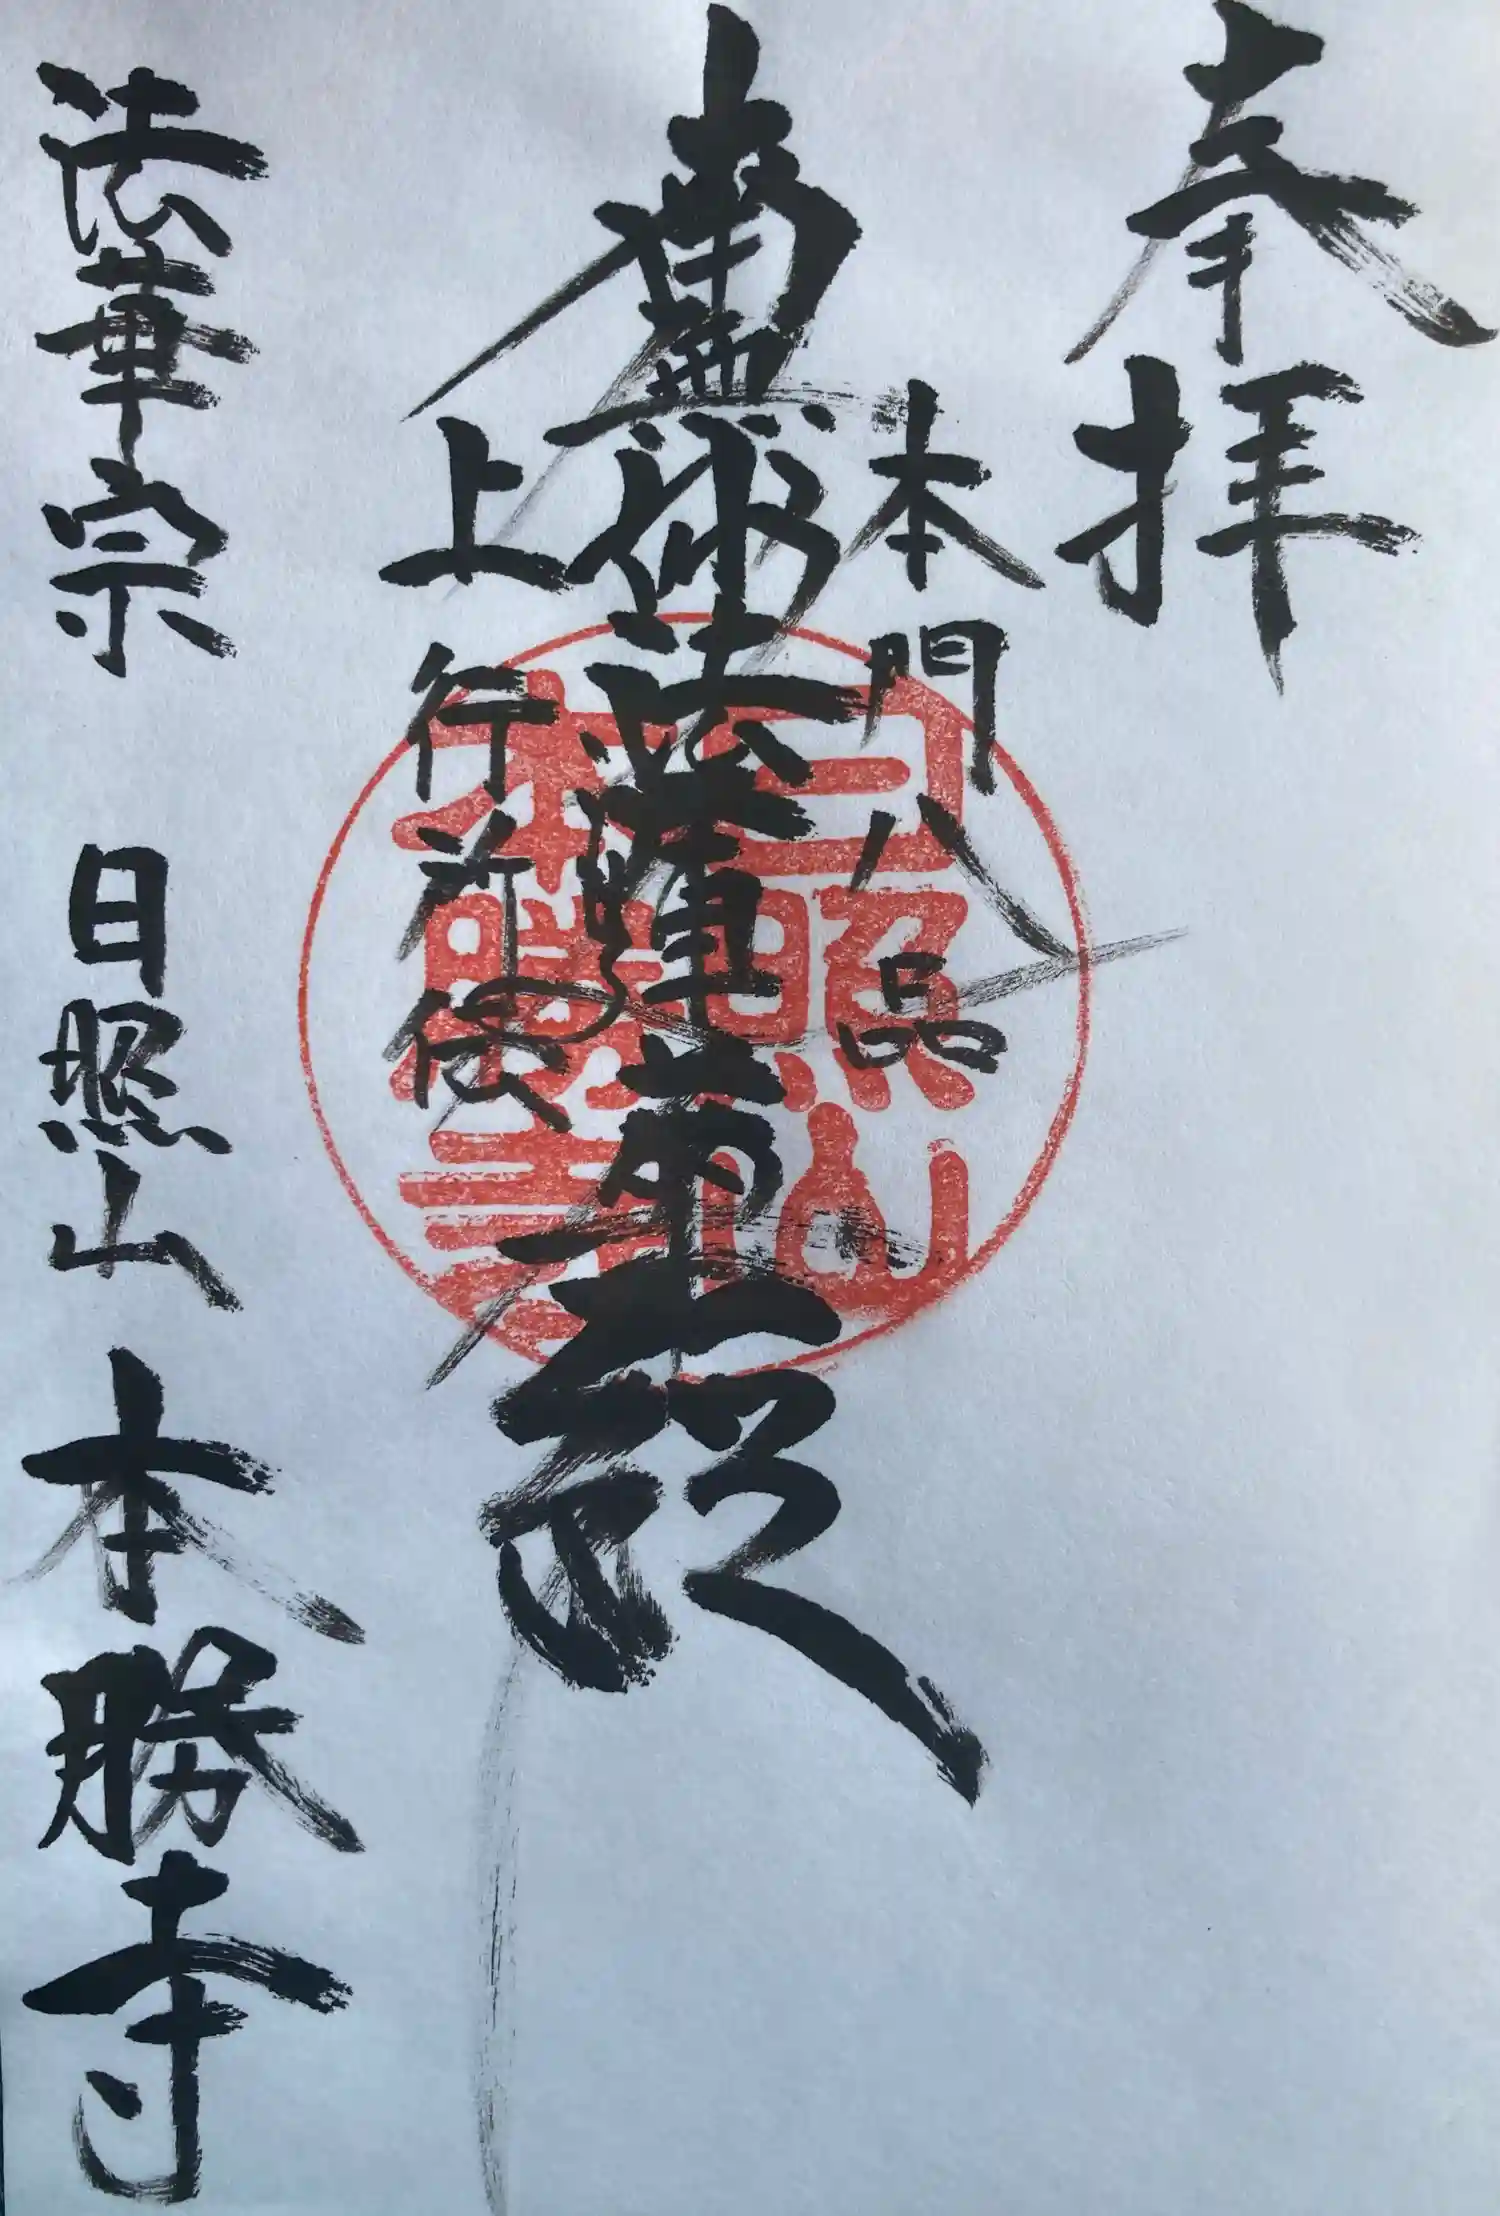 奉拝
本門八品
南無妙法蓮華経
上行所伝
法華宗 日照山 本勝寺
日照山
本勝寺